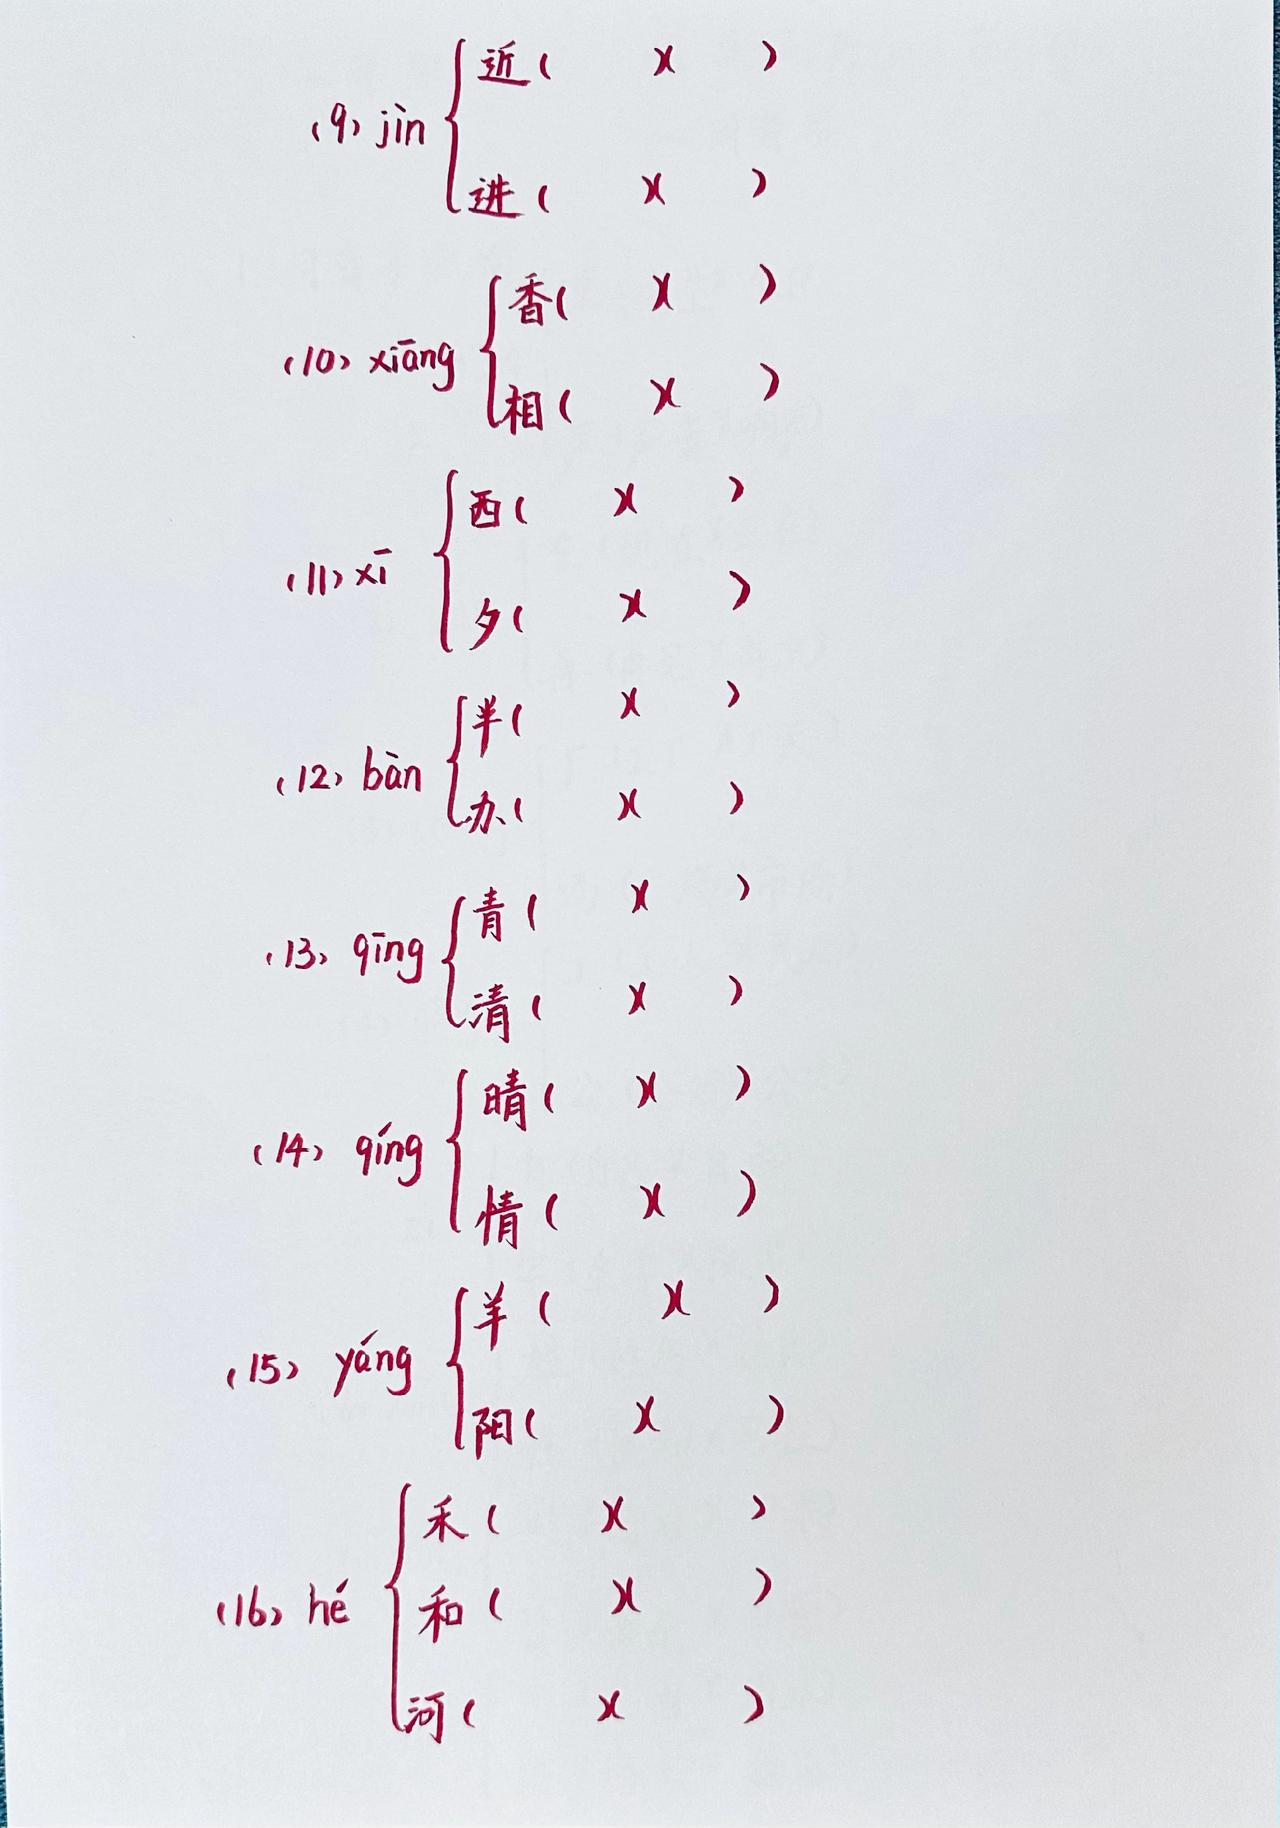 近(    )(    )
(9) jìn
进(    )(    )
香(    )(    )
(10) xiāng
相(    )(    )
西(    )(    )
(11) xī
夕(    )(    )
半(    )(    )
(12) bàn
办(    )(    )
青(    )(    )
(13) qīng
清(    )(    )
晴(    )(    )
(14) qíng
情(    )(    )
羊(    )(    )
(15) yáng
阳(    )(    )
禾(    )(    )
(16) hé
和(    )(    )
河(    )(    )